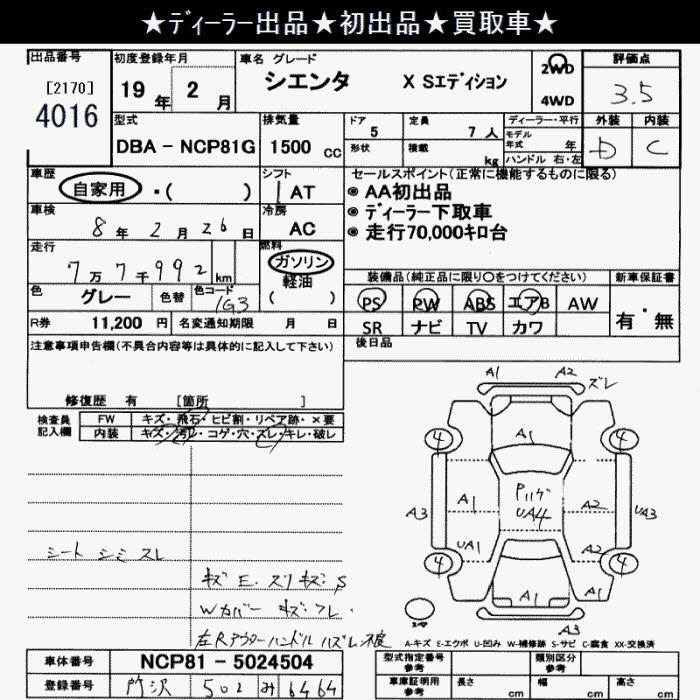 ★ﾃﾞィーラー出品★初出品★買取車★
出品番号
[2170]
4016
初度登録年月
19 年 2 月
車名 グレード
シエンタ X Sエディション
2WD
4WD
評価点
3.5
型式
DBA - NCP81G
排気量
1500 cc
ドア
5
定員
7 人
形状
積載
kg
ディーラー・平行
モデル年式 年
ハンドル 右・左
外装
D
内装
C
車歴
自家用 ・( )
シフト
IAT
セールスポイント(正常に機能するものに限る)
◉ AA初出品
◉ ディーラー下取車
◉ 走行70,000キロ台
車検
8 年 2 月 26 日
冷房
AC
走行
7万7千992 km
燃料
ガソリン
軽油
( )
色
グレー
色替
色コード
1G3
装備品(純正品に限り○をつけてください)
PS PW ABS エアB AW
SR ナビ TV カワ
新車保証書
有・無
R券 11,200 円
名変通知期限 月 日
後日品
注意事項申告欄(不具合内容等は具体的に記入して下さい)
修復歴 有 [箇所 ]
検査員記入欄
FW キズ・飛石・ヒビ割・リペア跡・×要
内装 キズ・汚レ・コゲ・穴・スレ・キレ・破レ
A1 A2 ズレ
4 A1 4
A3 A1 Pハゲ UA4 A2 UA3
UA1 A2
4 A1 A1 4
A3
シート シミ スレ
キズ E. スリキズ S
Wカバー キズ スレ.
左Rアウターハンドル ハズレ 不良
スペア
A-キズ E-エクボ U-凹み W-補修跡 S-サビ C-腐食 XX-交換済
車体番号 NCP81 - 5024504
登録番号 所沢 502 み 6464
型式指定番号 参考
類別区分 参考
車庫証明用 参考
長さ cm
幅 cm
高さ cm